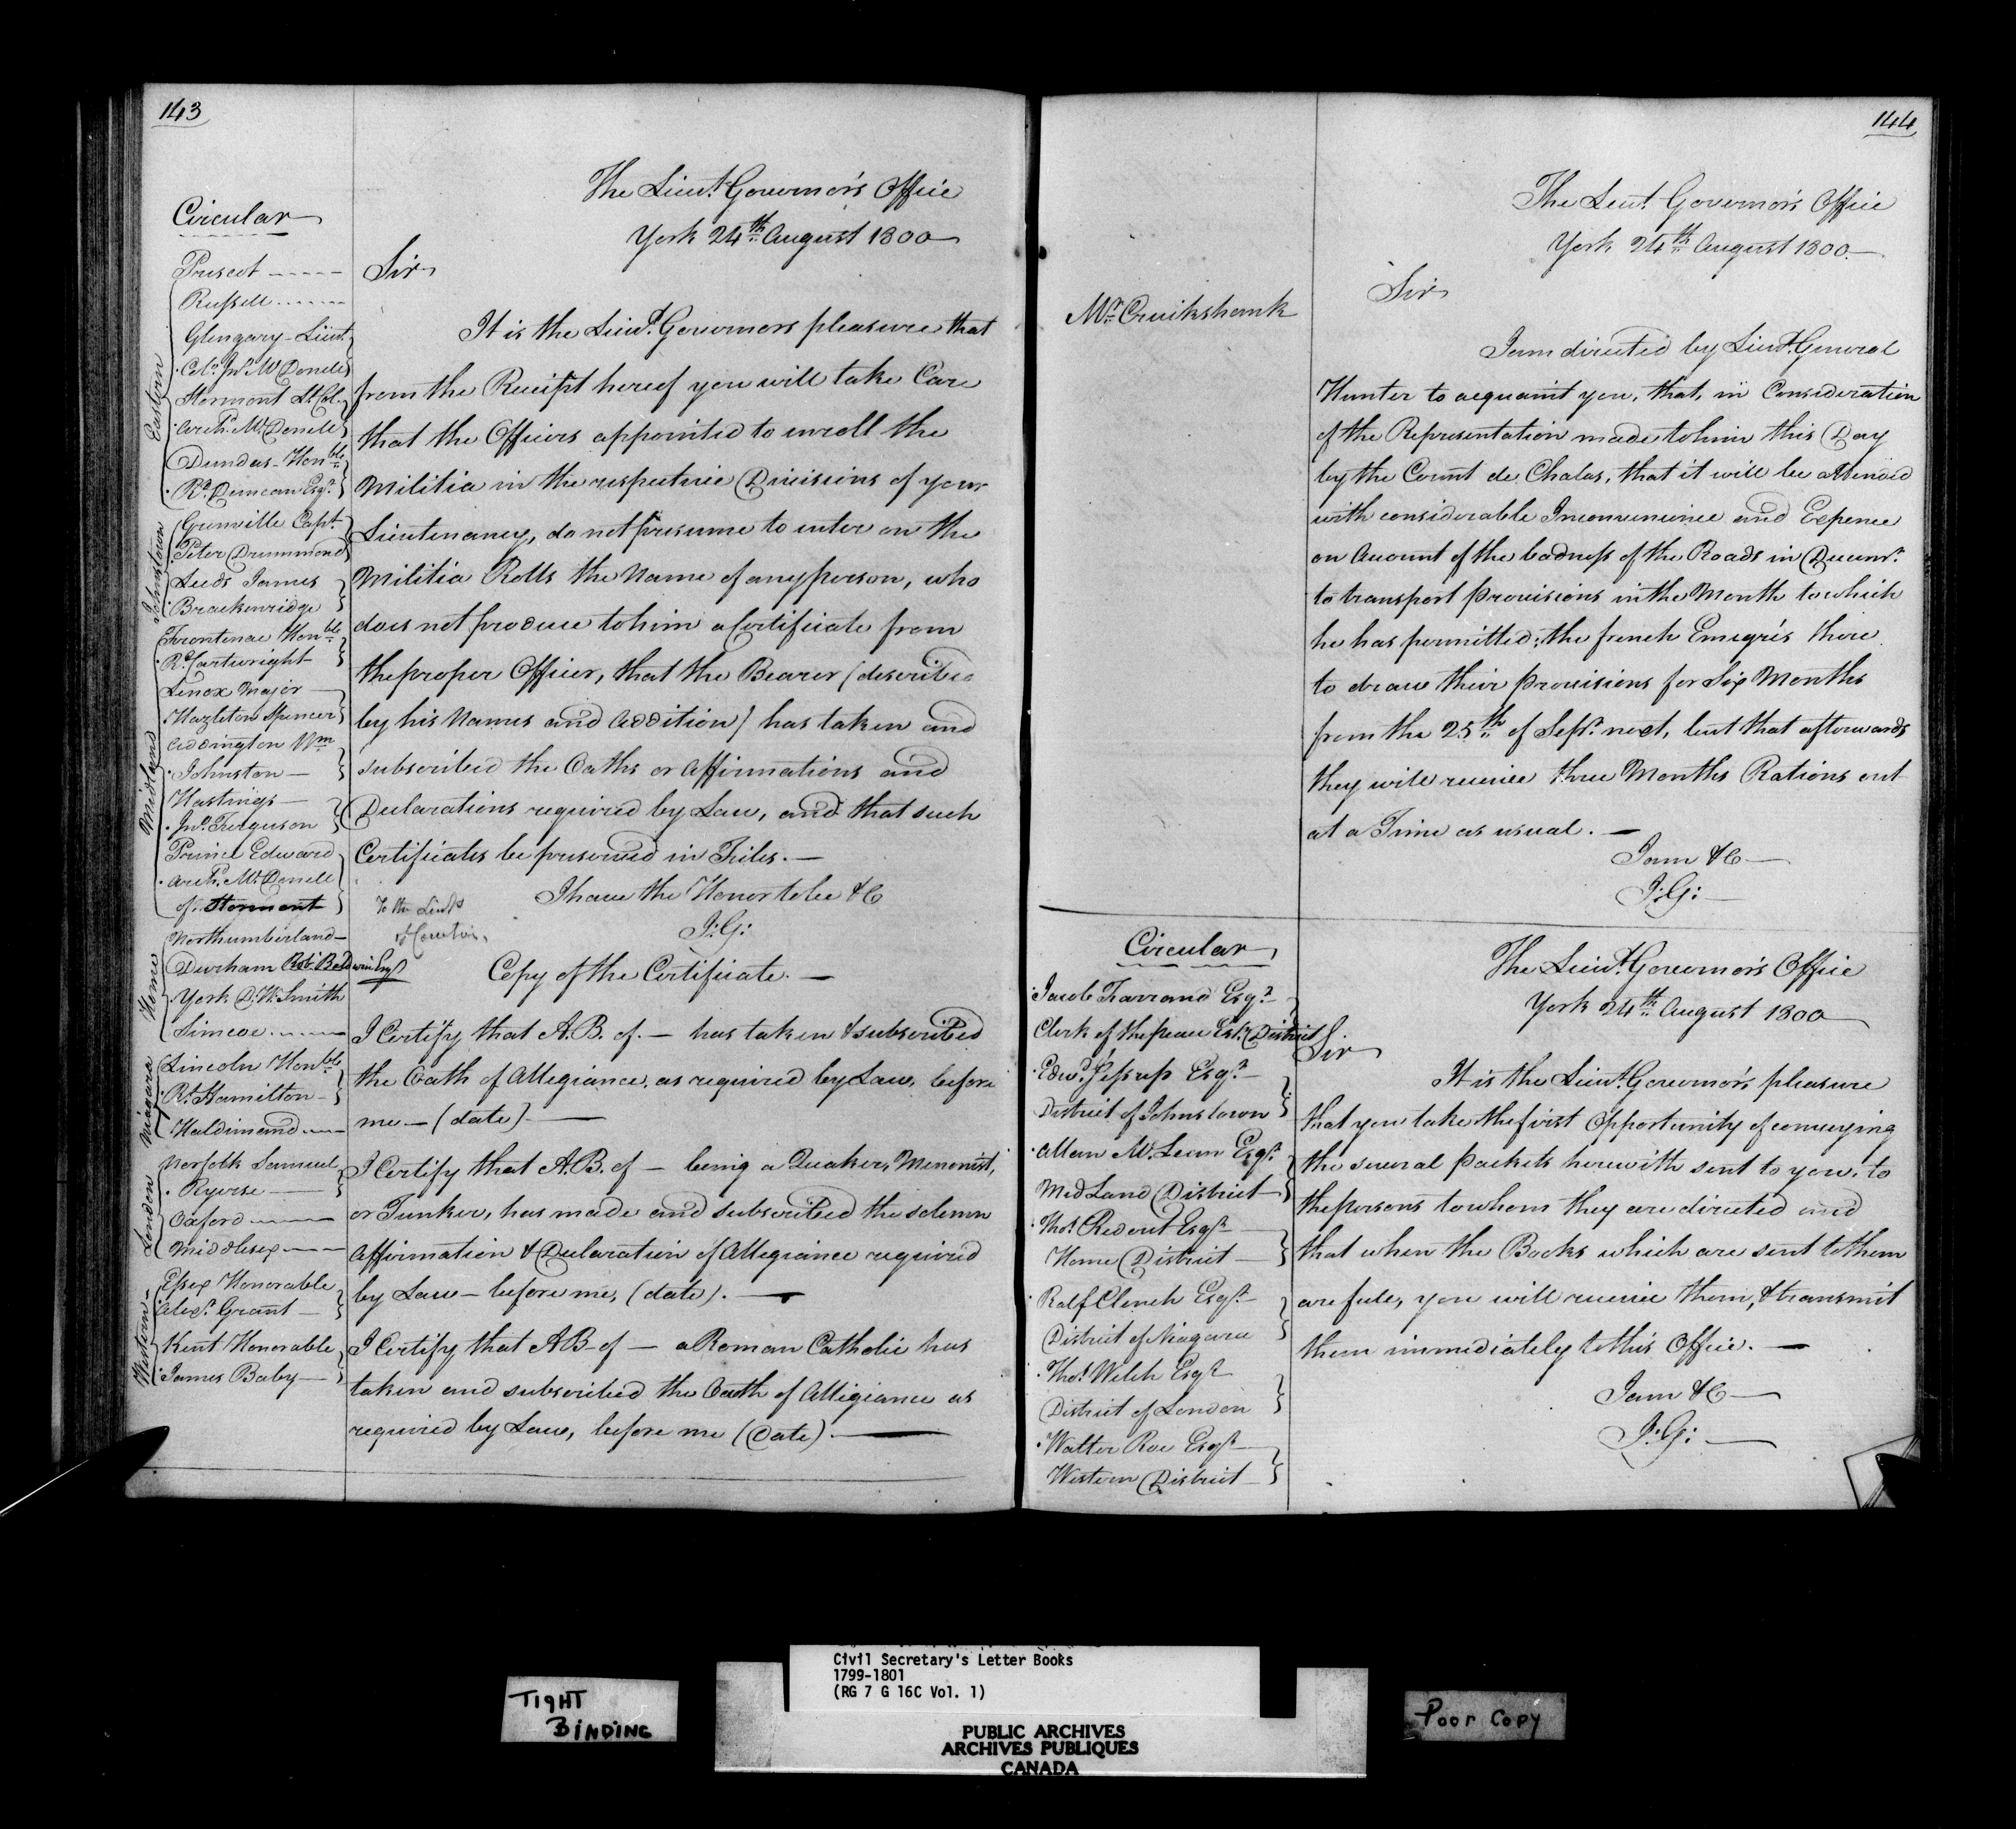 143
Circular
Prescot
Russell
Eastern
Glengary - Lieut.
Col. Jno. McDonell
Stormont Lt. Col.
Archd. McDonell
Dundas - Honble
Rd. Duncan Esqr.
Johnstown
Grenville Capt.
Peter Drummond
Leeds James
Brackenridge
Midland
Frontenac Honble
Rd. Cartwright
Lenox Major
Hazleton Spencer
Addington Wm
Johnston
Hastings
Jno. Ferguson
Prince Edward
Archd. McDonell
of Stormont
Home
Northumberland
Durham Robt. Baldwin Esqr
York D. W. Smith
Simcoe
Niagara
Lincoln Honble
Rt. Hamilton
Haldimand
London
Norfolk Samuel
Ryerse
Oxford
Middlesex
Western
Essex Honorable
Alexr. Grant
Kent Honorable
James Baby
The Lieut. Governor's Office
York 24th August 1800
Sir
It is the Lieut. Governors pleasure that
from the Receipt hereof you will take Care
that the Officers appointed to enroll the
Militia in the respective Divisions of your
Lieutenancy, do not presume to enter on the
Militia Rolls the Name of any person, who
does not produce to him a Certificate from
the proper Officer, that the Bearer (described
by his Names and Addition) has taken and
subscribed the Oaths or Affirmations and
Declarations required by Law, and that such
Certificates be preserved in Files. —
I have the Honor to be &c
J: G:
To the Lieuts
of Counties,
Copy of the Certificate. —
I Certify that A. B. of — has taken & subscribed
the Oath of Allegiance, as required by Law, before
me — (date). —
I Certify that A. B. of — being a Quaker, Menonist,
or Tunker, has made and subscribed the solemn
Affirmation & Declaration of Allegiance required
by Law — before me, (date). —
I Certify that A B - of — a Roman Catholic has
taken and subscribed the Oath of Alligiance as
required by Law, before me (Date). —
144
The Lieut. Governor's Office
York 24th August 1800. —
Mr. Cruikshank
Sir
I am directed by Lieut. General
Hunter to acquaint you, that, in Consideration
of the Representation made to him this Day
by the Count de Chalus, that it will be attended
with considerable Inconvenience and Expence
on Account of the badness of the Roads in Decemr.
to transport Provisions in the Month to which
he has permitted; the french Emegrés there
to draw their provisions for Six Months
from the 25th of Sepr. next, but that afterwards
they will receive three Months Rations out
at a Time as usual. —
I am &c —
J: G: —
Circular
Jacob Farrand Esqr.
Clerk of the peace Estn. District
Edwd. Jessup Esqr.
District of Johnstown
Allan McLean Esqr.
Mid Land District
Thos. Ridout Esqr.
Home District
Ralf Clench Esqr.
District of Niagara
Thos. Welch Esqr
District of London
Walter Roe Esqr
Western District
The Lieut. Governor's Office
York 24th August 1800
Sir
It is the Lieut. Governor's pleasure
that you take the first Opportunity of conveying
the several packets herewith sent to you, to
the persons to whom they are directed and
that when the Books which are sent to them
are full, you will receive them, & transmit
them immediately to this Office. —
I am &c —
J: G: —
TIGHT
BINDING
Civil Secretary's Letter Books
1799-1801
(RG 7 G 16C Vol. 1)
PUBLIC ARCHIVES
ARCHIVES PUBLIQUES
CANADA
Poor Copy